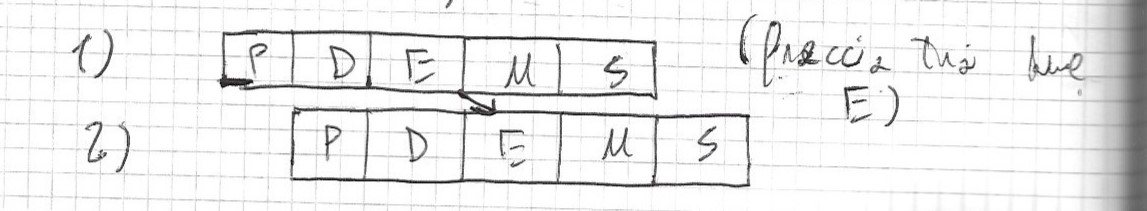 1) P D E M S (freccia tra due
E)
2) P D E M S